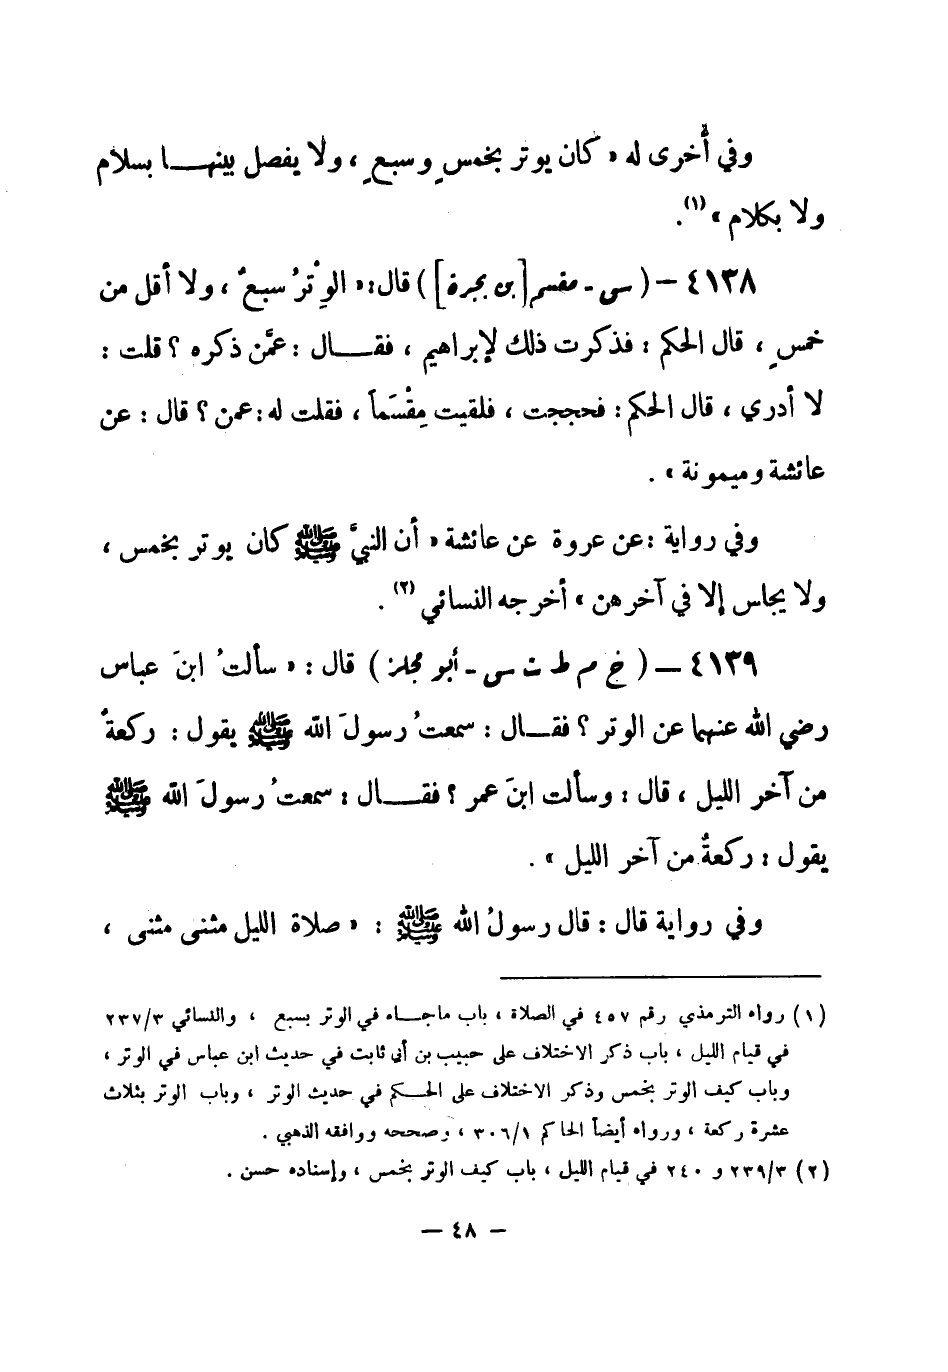 وفي أُخرى له « كان يوتر بخمسٍ وسبعٍ ، ولا يفصل بينهــا بسلام
ولا بكلام » (١).
٤١٣٨ – ( سى - مقسم [ بن بجرة ] ) قال : « الوِتْرُ سبعٌ ، ولا أقل من
خمسٍ ، قال الحكم : فذكرت ذلك لإبراهيم ، فقــال : عمَّن ذكره ؟ قلت :
لا أدري ، قال الحكم : فحججت ، فلقيت مِقْسَماً ، فقلت له : عمن ؟ قال : عن
عائشة وميمونة » .
وفي رواية : عن عروة عن عائشة « أن النبيَّ ﷺ كان يوتر بخمس ،
ولا يجلس إلا في آخرهن » أخرجه النسائي (٢) .
٤١٣٩ – ( خ م ط ت سى - أبو مجلز ) قال : « سألتُ ابنَ عباس
رضي الله عنهما عن الوتر ؟ فقــال : سمعتُ رسولَ الله ﷺ يقول : ركعةٌ
من آخر الليل ، قال : وسألت ابنَ عمر ؟ فقــال : سمعتُ رسولَ الله ﷺ
يقول : ركعةٌ من آخر الليل » .
وفي رواية قال : قال رسولُ الله ﷺ : « صلاة الليل مثنى مثنى ،
(١) رواه الترمذي رقم ٤٥٧ في الصلاة ، باب ماجــاء في الوتر بسبع ، والنسائي ٢٣٧/٣
في قيام الليل ، باب ذكر الاختلاف على حبيب بن أبي ثابت في حديث ابن عباس في الوتر ،
وباب كيف الوتر بخمس وذكر الاختلاف على الحــكم في حديث الوتر ، وباب الوتر بثلاث
عشرة ركعة ، ورواه أيضاً الحاكم ٣٠٦/١ ، وصححه ووافقه الذهبي .
(٢) ٢٣٩/٣ و ٢٤٠ في قيام الليل ، باب كيف الوتر بخمس ، وإسناده حسن .
– ٤٨ –